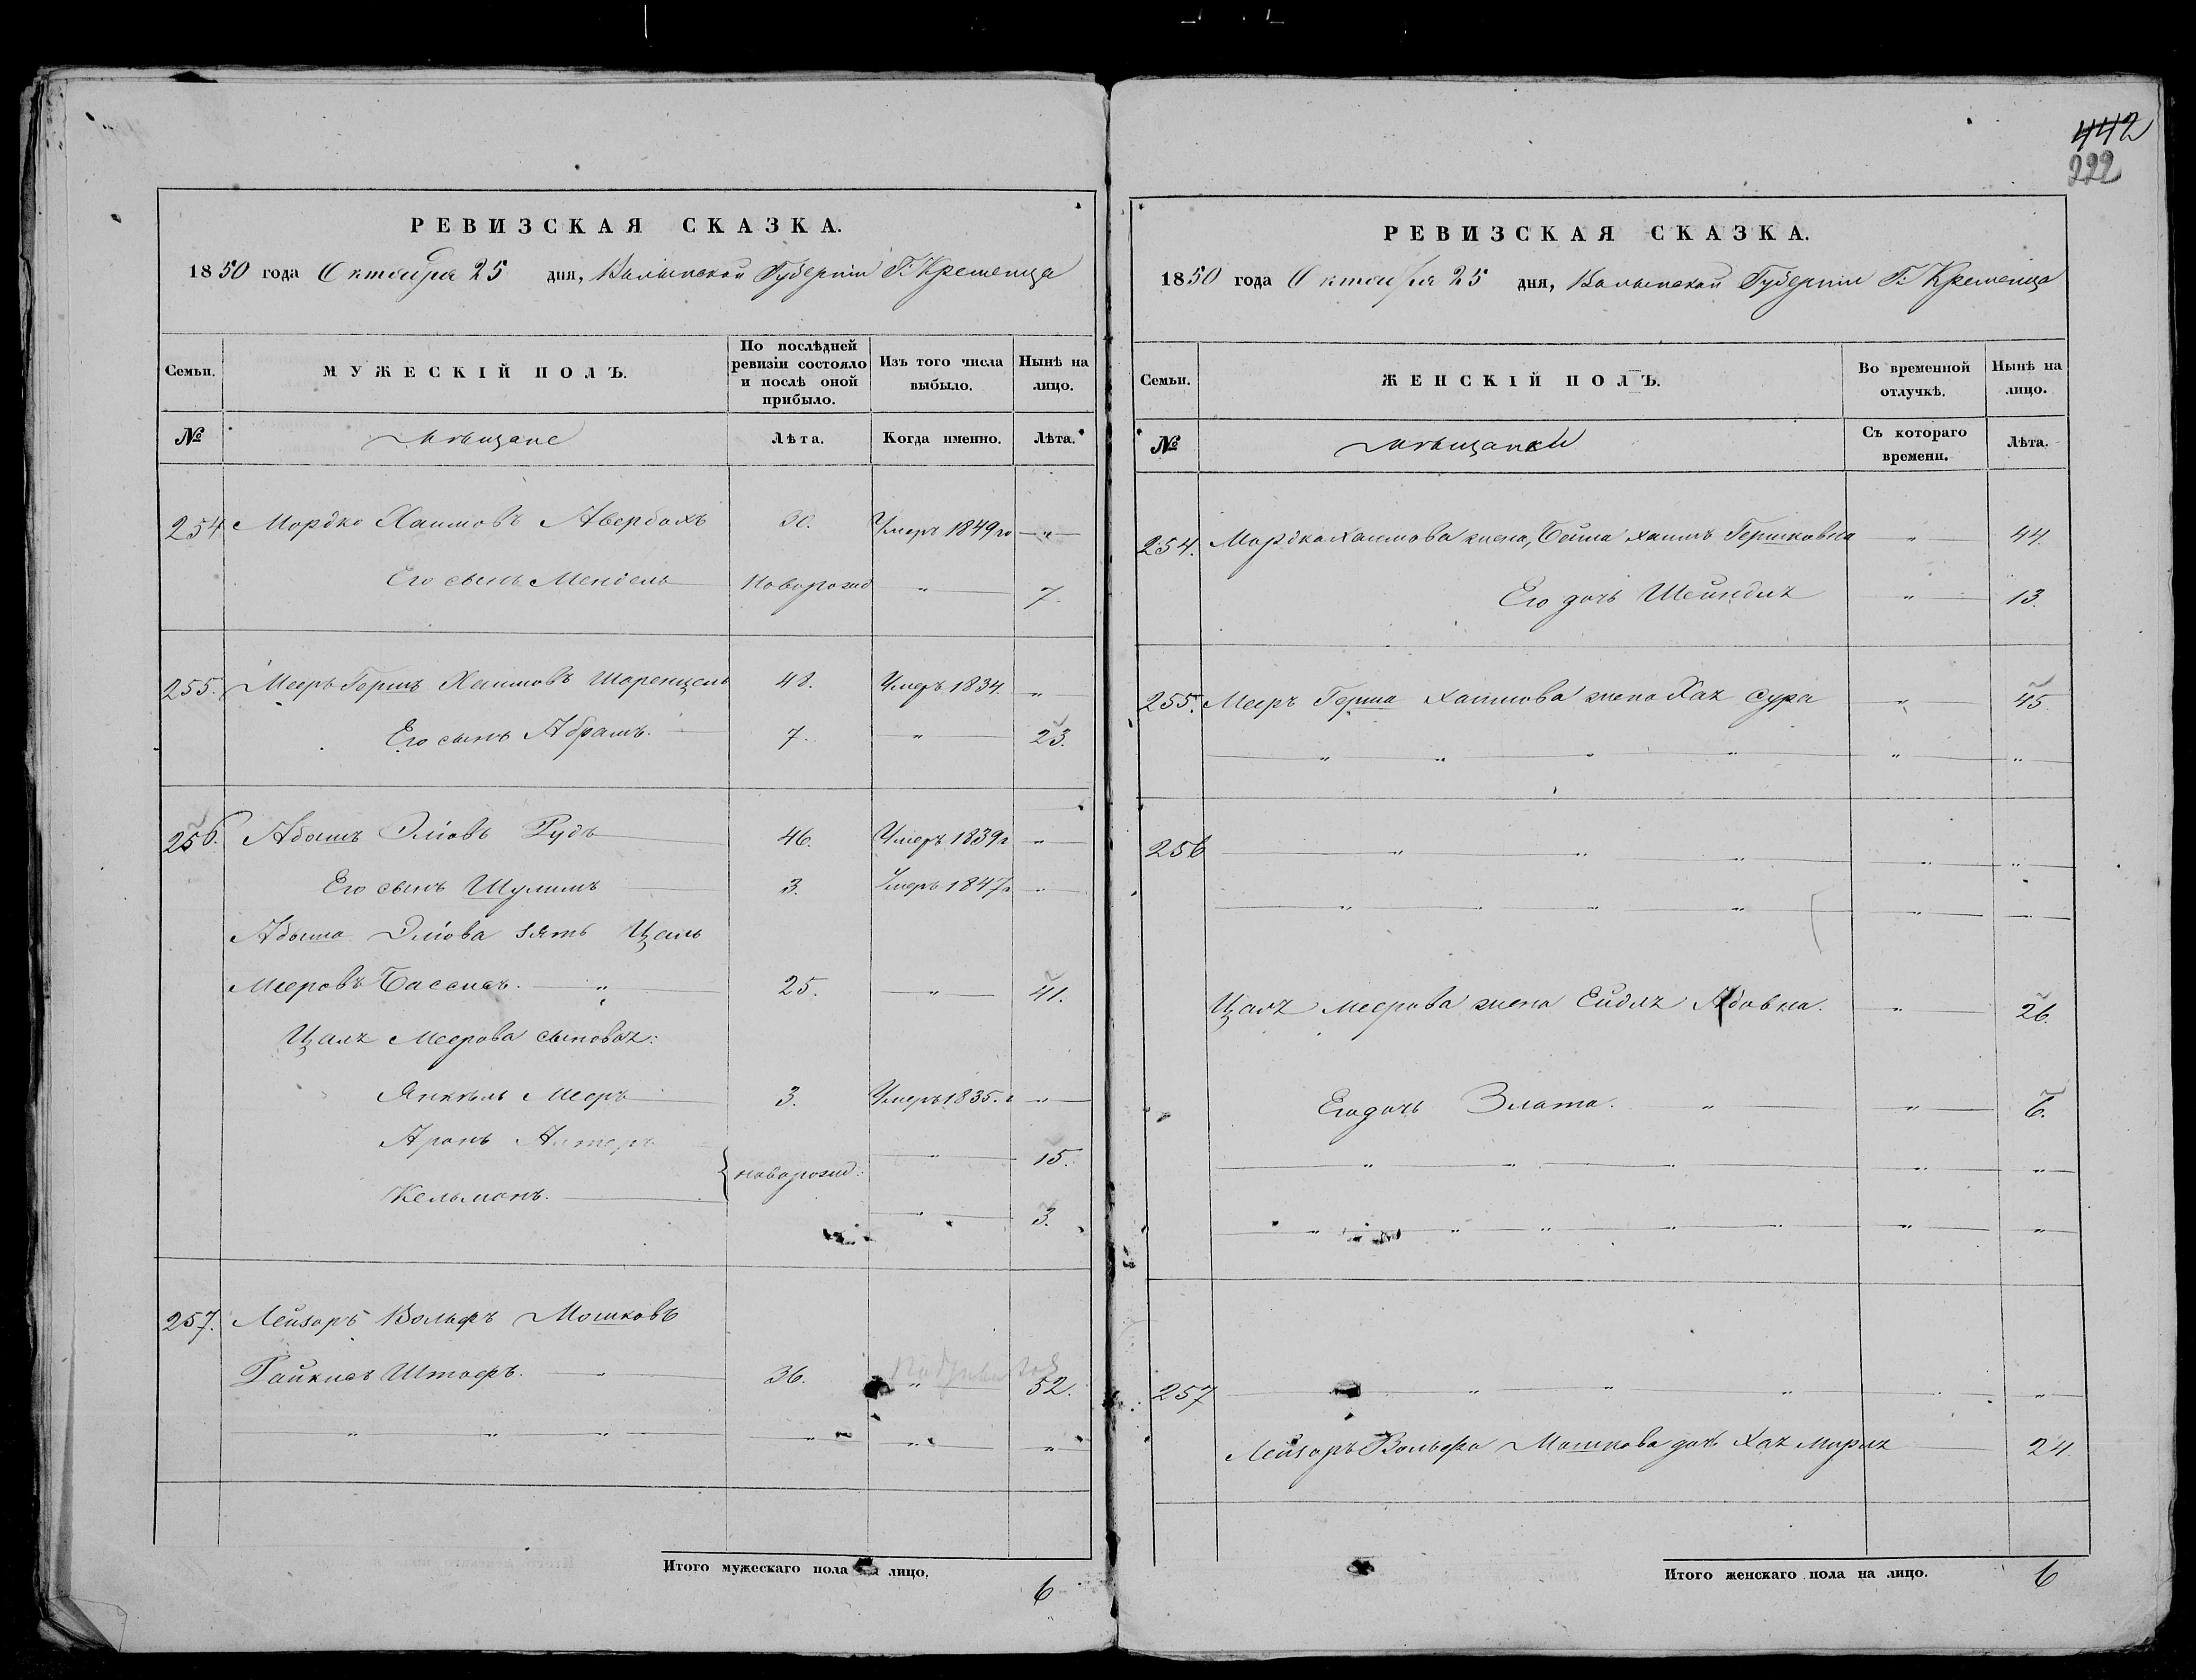 442
222
РЕВИЗСКАЯ СКАЗКА.
1850 года Октября 25 дня, Волынской Губернiи Г. Кременца
Семьи.
МУЖЕСКIЙ ПОЛЪ.
По послѣдней ревизiи состояло и послѣ оной прибыло.
Изъ того числа выбыло.
Нынѣ на лицо.
№
Мѣщане
Лѣта.
Когда именно.
Лѣта.
254 Мордко Хаимовъ Авербахъ 30. Умеръ 1849го — " —
Его сынъ Мендель Новорожд — " — 7.
255. Мееръ Гершъ Хаимовъ Шоренцель 48. Умеръ 1834. "
Его сынъ Абрамъ. 7. — " — 23.
256. Абошъ Элiовъ Рудъ 46. Умеръ 1839г — " —
Его сынъ Шулимъ 3. Умеръ 1847г — " —
Абоша Элiова зять Цаль
Мееровъ Бассисъ. — " — 25. — " — 41.
Цаля Меерова сыновья:
Янкель Мееръ 3. Умеръ 1835. г — " —
Аронъ Алтеръ — " — 15.
новорожд.
Кельманъ. — " — 3.
257. Лейзоръ Вольфъ Мошковъ
Райкисъ Штофъ. — " — 36. — " — 52.
— " — " — " — " — " — "
Итого мужескаго пола на лицо. 6
РЕВИЗСКАЯ СКАЗКА.
1850 года Октября 25 дня, Волынской Губернiи Г. Кременца
Семьи.
ЖЕНСКIЙ ПОЛЪ.
Во временной отлучкѣ.
Нынѣ на лицо.
№
Мѣщанки
Съ котораго времени.
Лѣта.
254. Мордка Хаимова жена, Бейла Хаимъ Гершковна — " — 44.
Его дочь Шейндля — " — 13.
255. Мееръ Герша Хаимова жена Хая Сура — " — 45.
— " — " — " — " — " — "
256 — " — " — " — " — "
— " — " — " — " — " — "
Цаля Меерова жена Ейдля Абовна. — " — 26.
Его дочь Злата. — " — " — 6.
— " — " — " — " — "
— " — " — " — " — " — "
257 — " — " — " — "
Лейзоръ Вольфа Мошкова дочь Хая Мирля — 24.
Итого женскаго пола на лицо. 6